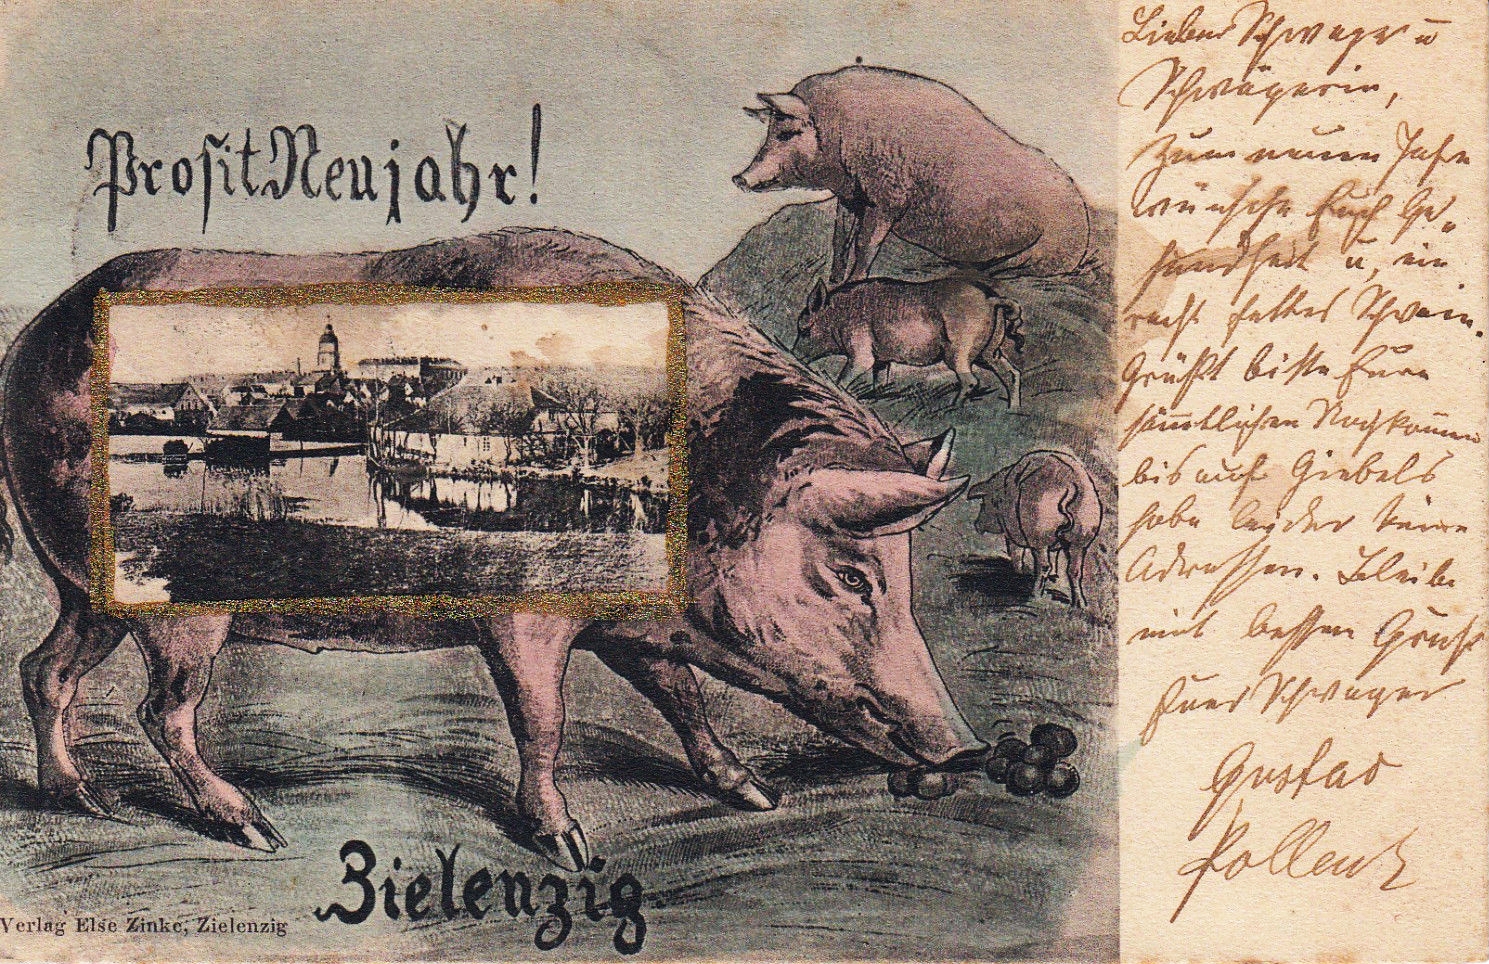 Prosit Neujahr!
Zielenzig
Verlag Else Zinke, Zielenzig
Lieber Schwager u
Schwägerin,
Zum neuen Jahr
wünsche Euch Ge„
sundheit u, ein
recht fettes Schwein.
Grüßt bitte Eure
sämtlichen Nachkomm̅
bis auf Giebels
habe leider keine
Adressen. Bleibe
mit besten Gruß
Euer Schwager
Gustav